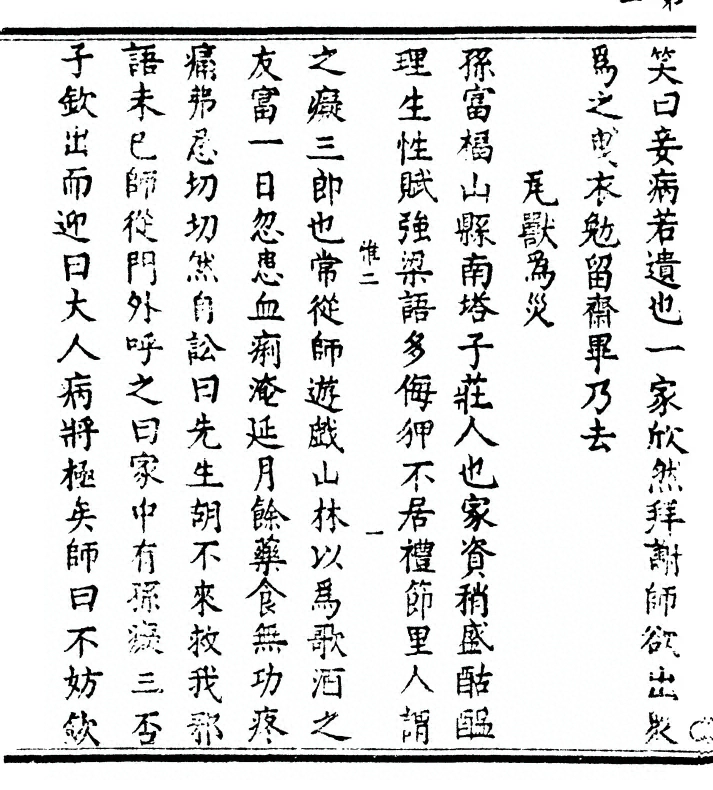 笑曰妾病若遺也一家欣然拜謝師欲出衆
爲之曳衣勉留齋畢乃去
瓦獸爲災
孫富樠山縣南塔子莊人也家資稍盛酤醞
理生性賦強梁語多侮狎不居禮節里人謂
惟二 一
之癡三郎也常從師遊戲山林以爲歌酒之
友富一日忽患血痢淹延月餘藥食無功疼
痛弗忍切切然自訟曰先生胡不來救我耶
語未已師從門外呼之曰家中有孫癡三否
子欽出而迎曰大人病將極矣師曰不妨飲